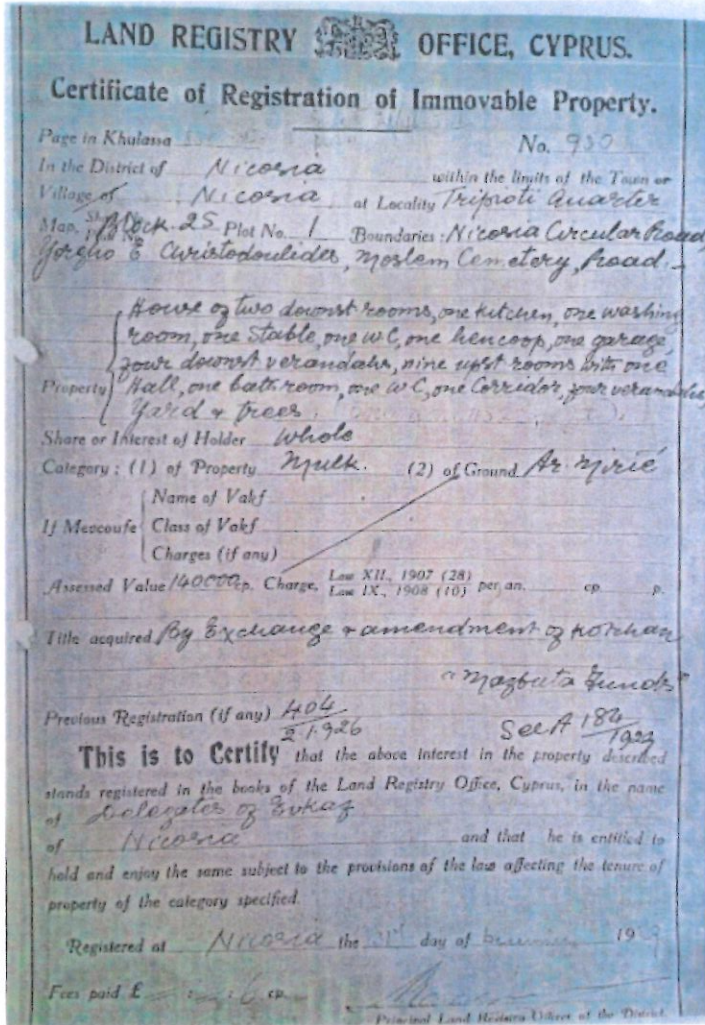 LAND REGISTRY OFFICE, CYPRUS.
Certificate of Registration of Immovable Property.
Page in Khulassa
No. 930
In the District of Nicosia within the limits of the Town or
Village of Nicosia at Locality Tripioti Quarter
Map, Block. 25 Plot No. 1 Boundaries: Nicosia Circular Road,
Yorgho E Christodoulides, Moslem Cemetery, Road.
House of two downst rooms, one kitchen, one washing
room, one stable, one W C, one hencoop, one garage,
four downst verandahs, nine upst rooms with one
Property Hall, one bathroom, one W C, one Corridor, four verandahs,
Yard & trees.
Share or Interest of Holder Whole
Category: (1) of Property Mulk. (2) of Ground Ar. Mirié
Name of Vakf
If Mevcoufe Class of Vakf
Charges (if any)
Assessed Value 14000cp. Charge, Law XII., 1907 (28) Law IX., 1908 (10) per an. cp. p.
Title acquired By Exchange & amendment of Kotchan
"Mazbuta Funds"
Previous Registration (if any) 404 / 2.1.926 See A 184/
This is to Certify that the above interest in the property described
stands registered in the books of the Land Registry Office, Cyprus, in the name
of Delegates of Evkaf
of Nicosia and that he is entitled to
hold and enjoy the same subject to the provisions of the law affecting the tenure of
property of the category specified.
Registered at Nicosia the 31st day of 19
Fees paid £ 6 cp.
Principal Land Registry Officer of the District.